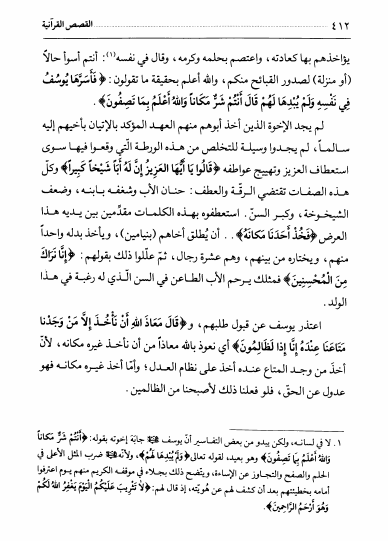 ٤١٢ القصص القرآنية
يؤاخذهم بها كعادته، واعتصم بحلمه وكرمه، وقال في نفسه(١): أنتم أسوأ حالاً
(أو منزلة) لصدور القبائح منكم، والله أعلم بحقيقة ما تقولون: ﴿فَأَسَرَّهَا يُوسُفُ
فِي نَفْسِهِ وَلَمْ يُبْدِهَا لَهُمْ قَالَ أَنْتُمْ شَرٌّ مَكَاناً وَاللهُ أَعْلَمُ بِمَا تَصِفُونَ﴾.
لم يجد الإخوة الذين أخذ أبوهم منهم العهد المؤكد بالإتيان بأخيهم إليه
سالماً، لم يجدوا وسيلة للتخلص من هذه الورطة الّتي وقعوا فيها سوى
استعطاف العزيز وتهييج عواطفه ﴿قَالُوا يَا أَيُّهَا العَزِيزُ إِنَّ لَهُ أَباً شَيْخاً كَبِيراً﴾ وكلّ
هذه الصفات تقتضي الرقّة والعطف: حنان الأب وشغفه بابنه، وضعف
الشيخوخة، وكبر السنّ. استعطفوه بهذه الكلمات مقدِّمين بين يديه هذا
العرض ﴿فَخُذْ أَحَدَنَا مَكَانَهُ﴾.. أن يُطلق أخاهم (بنيامين)، ويأخذ بدله واحداً
منهم، ويختاره من بينهم، وهم عشرة رجال، ثمّ علّلوا ذلك بقولهم: ﴿إِنَّا نَرَاكَ
مِنَ الْمُحْسِنِينَ﴾ فمثلك يرحم الأب الطاعن في السن الّذي له رغبة في هذا
الولد.
اعتذر يوسف عن قبول طلبهم، و﴿قَالَ مَعَاذَ اللهِ أَنْ نَأْخُذَ إِلاَّ مَنْ وَجَدْنَا
مَتَاعَنَا عِنْدَهُ إِنَّا إِذاً لَظَالِمُونَ﴾ أي نعوذ بالله معاذاً من أن نأخذ غيره مكانه، لأنّ
أخذ من وجد المتاع عنده أخذ على نظام العدل؛ وأمّا أخذ غيره مكانه فهو
عدول عن الحقّ، فلو فعلنا ذلك لأصبحنا من الظالمين.
١. لا في لسانه، ولكن يبدو من بعض التفاسير أنّ يوسف جابَهَ إخوته بقوله: ﴿أَنْتُمْ شَرٌّ مَكَاناً
وَاللهُ أَعْلَمُ بِمَا تَصِفُونَ﴾ وهو بعيد، لقوله تعالى ﴿وَلَمْ يُبْدِهَا لَهُمْ﴾، ولأنّه ضرب المثل الأعلى في
الحلم والصفح والتجاوز عن الإساءة، ويتّضح ذلك بجلاء في موقفه الكريم منهم يوم اعترفوا
أمامه بخطيئتهم بعد أن كشف لهم عن هُويّته، إذ قال لهم: ﴿لاَ تَثْرِيبَ عَلَيْكُمُ الْيَوْمَ يَغْفِرُ اللهُ لَكُمْ
وَهُوَ أَرْحَمُ الرَّاحِمِينَ﴾.